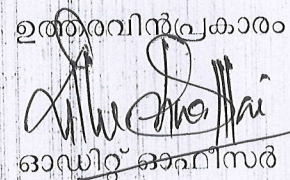 ഉത്തരവിൻപ്രകാരം
ഓഡിറ്റ് ഓഫീസർ